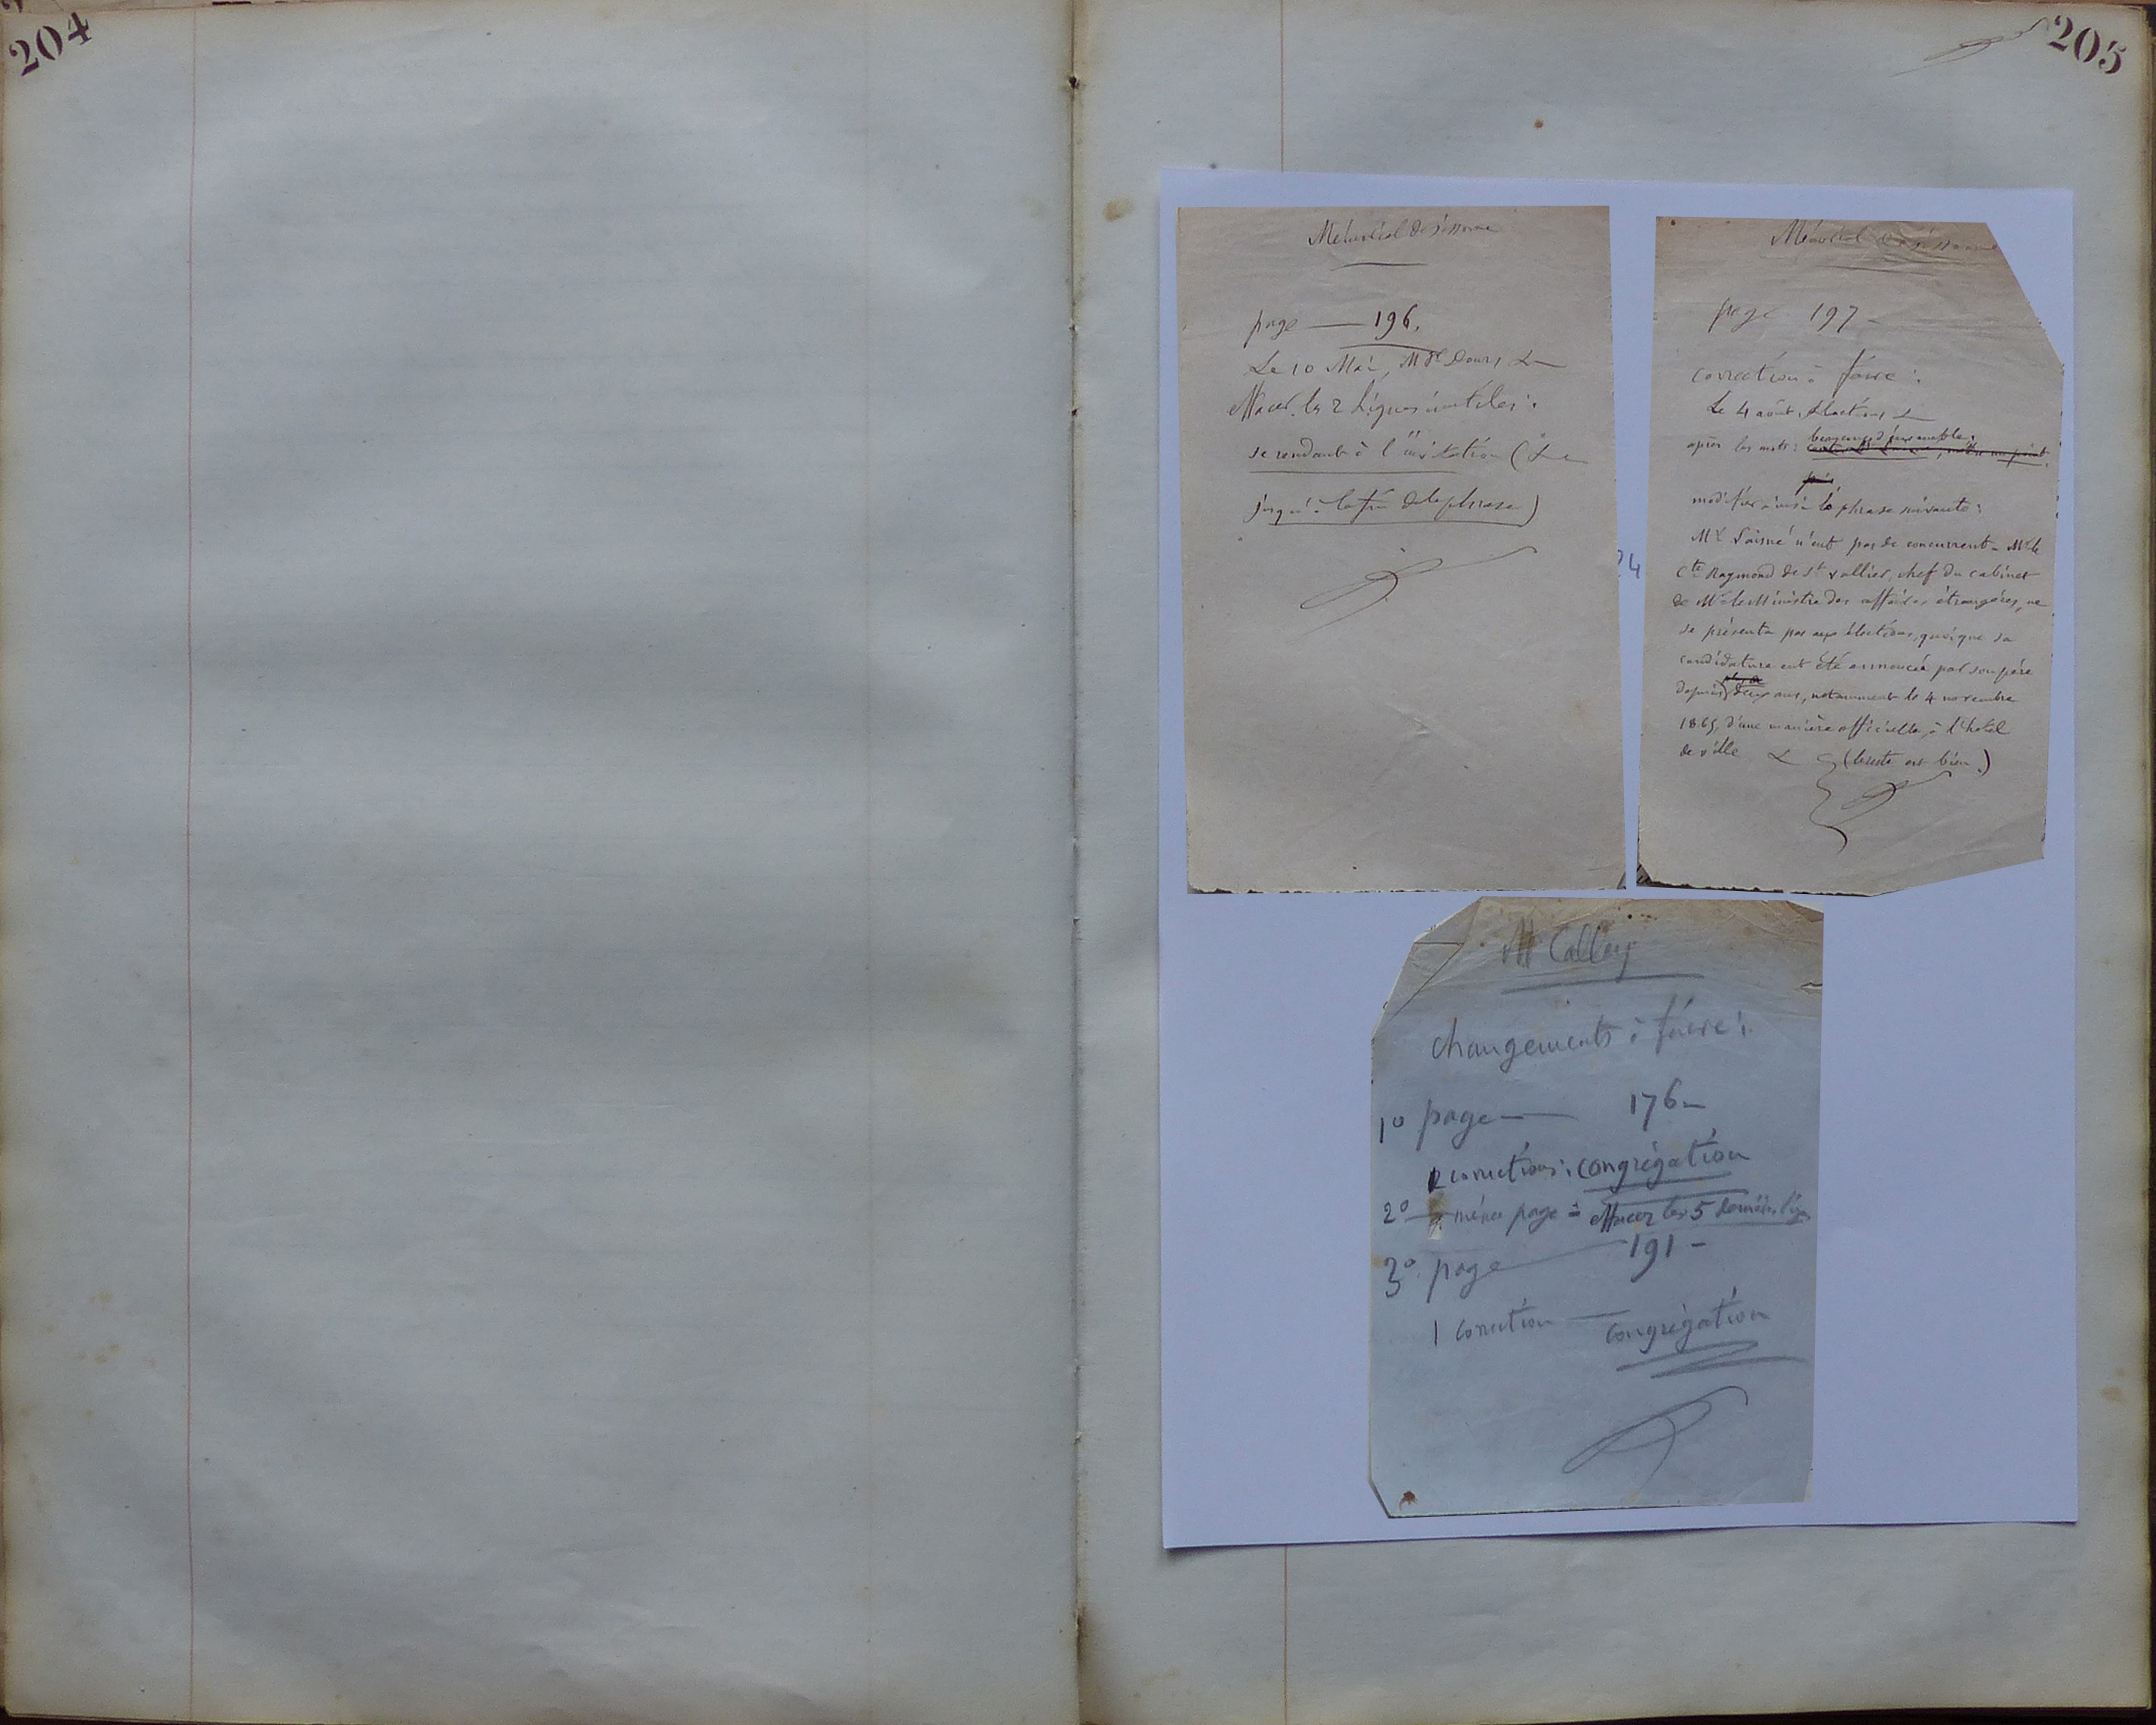 204
205
Mémorial de Sissonne
page — 196.
Le 10 Mai, Mgr Dours &
effacer les 2 lignes inutiles :
se rendant à l'invitation (&
jusqu'à la fin de la phrase)
Mémorial de Sissonne
page 197 -
correction à faire :
Le 4 août, élections &
après les mots : beaucoup d'ensemble,
modifier ainsi la phrase suivante :
Mr n'eut pas de concurrent - Mr le
Cte Raymond de St Vallier, chef du cabinet
de Mr le Ministre des affaires étrangères, ne
se présenta pas aux élections, quoique sa
candidature eut été annoncée par son père
depuis deux ans, notamment le 4 novembre
1865, d'une manière officielle, à l'hotel
de ville & (le reste est bien.)
24
Mr Callay
changements à faire :
1º page — 176 -
2 corrections : congrégation
2º — même page = effacer les 5 dernières lignes
3º page — 191 -
1 correction — congrégation